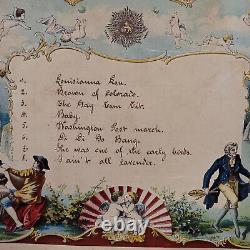 1. Louisianna Lou.
2. Brown of Colorado.
3. The Gay Tom Tit.
4. Baby.
5. Washington Post march.
6. Li Li Do Bango.
7. She was one of the early birds.
8. I ain't all lavender.